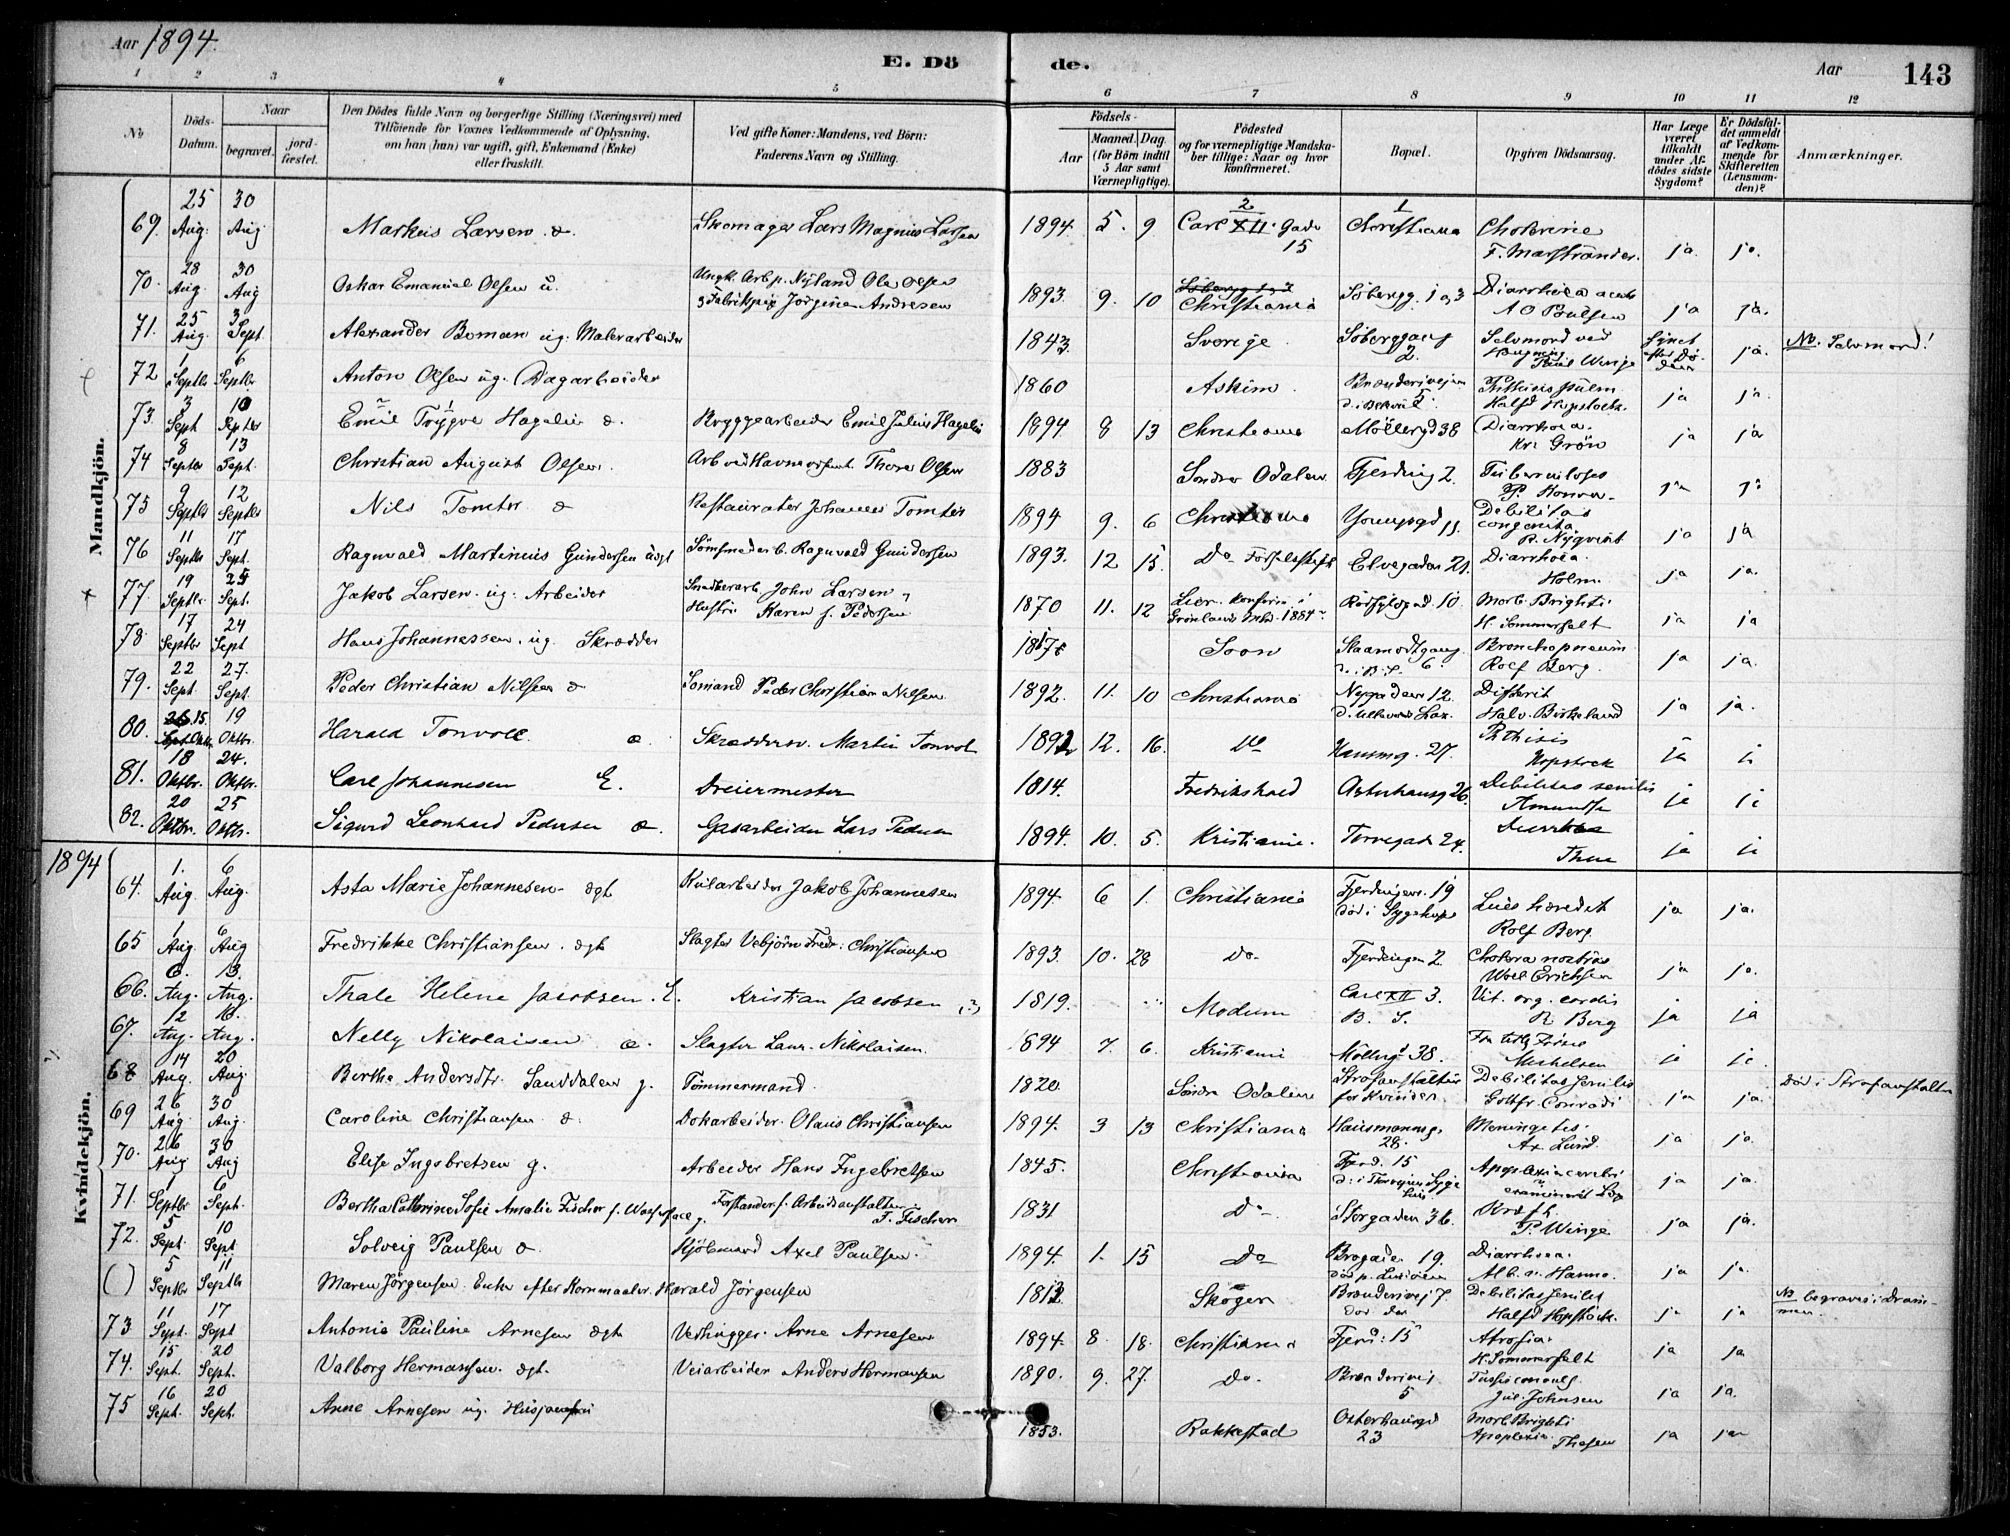 Aar 1894.
E. Dö
de.
Aar
143
1 2 3 4 5 6 7 8 9 10 11 12
No
Döds-
Datum.
Naar
begravet.
jord-
fæstet.
Den Dödes fulde Navn og borgerlige Stilling (Næringsvei) med
Tilföiende for Voxnes Vedkommende af Oplysning,
om han (hun) var ugift, gift, Enkemand (Enke)
eller fraskilt.
Ved gifte Koner: Mandens, ved Börn:
Faderens Navn og Stilling.
Födsels-
Aar
Maaned. Dag.
(for Börn indtil
5 Aar samt
Værnepligtige).
Födested
og for værnepligtige Mandska-
ber tillige: Naar og hvor
konfirmeret.
Bopæl.
Opgiven Dödsaarsag.
Har Læge
været
tilkaldt
under Af-
dödes sidste
Sygdom?
Er Dödsfal-
det anmeldt
af Vedkom-
mende for
Skifteretten
(Lensman-
den)?
Anmærkninger.
Mandkjön.
69. 25 Aug. 30 Aug Markus Larsen Skomager Lars Magnus Larsen 1894. 5. 9 Carl XII. Gade 15 Christiania Cholerine ja. ja.
70. 28 Aug. 30 Aug Oskar Emanuel Olsen u. Ungk. Arb. p. Nyland Ole Olsen
Jörgine Andresen 1893. 9. 10 Christiania Söbergg. 1 o 3 Diarrhoea acuta ja ja.
71. 25 Aug. 3 Sept. Alexander Boman ug. Malerarbeider 1843. Sverige Söberggang 2. Selvmord ved Paul Winge ja. No. Selvmord!
72 1 Septbr 6 Septbr. Anton Olsen ug. Dagarbeider 1860 Askim Brænderiveien 5 Phthisis pulm. ja ja.
73. 3 Sept 10 Septbr Emil Trygve Hagelin Bryggearbeider Emil Julius Hagelin 1894 8 13 Christiania Möllergd 38 Diarrhoea. Kr. Grön ja ja
74 8 Septbr 13 Sept. Christian August Olsen. Arb ved Havnevæsent. Thore Olsen 1883 Söndre Odalen Fjerding 2. Tuberculosis ja ja
75 9 Septbr 12 Septbr Nils Tomter Restauratør Johannes Tomter 1894 9. 6 Christiania Youngsgd 11. Debilitas
congenita R. Nyqvist ja ja
76 11 Septbr 17 Sept. Ragnvald Martinius Gundersen Ragnvald Gundersen 1893. 12 15. Do Födselsstift Elvegaden 21. Diarrhoea. Holm. ja ja.
77 19 Septbr. 25 Sept. Jakob Larsen. ug. Arbeider Snedkerarb John Larsen
Hustru Karen f. Pedersen 1870 11. 12 Lier. Konfirm. i
Grönland Morb. Brighti
H. Sommerfelt ja ja
78. 17 Septbr 24 Sept Hans Johannessen. ug. Skrædder Soon Bronchopneum
Rolf Berg. ja ja.
79. 22 Sept. 27. Sept. Peder Christian Nilsen Sömand Peder Christian Nilsen 1892. 11. 10 Christiania Nygaden 12. Difterit
Halv. Birkeland ja ja.
80. 15. Oktbr. 19 Oktbr. Harald Tonvoll æ. Martin Tonvol 12. 16. Do Hausmg. 27. Phthisis
Hopstock ja ja
81. 18 Oktbr. 24. Oktbr. Carl Johannesen E. Dreiermester 1814. Fredrikshald 26. Debilitas senilis ja ja
82. 20 Oktbr. 25 Oktbr. Sigurd Leonhard Pedersen æ. Gasarbeider Lars Pedersen 1894. 10. 5. Kristiania. Torvegad 24. ja ja
1894
Kvindekjön.
64. 1. Aug. 6 Aug. Asta Marie Johannesen. ægt Jakob Johannesen 1894. 6 1. Christiania Fjerdingen. 19
död i Sygehus Lues hæredit
Rolf Berg. ja ja.
65 1 Aug. 6 Aug Fredrikke Christiansen. ægt Slagter Vebjörn Fredr. Christiansen 1893. 10. 28 Do. Fjerdingen 2. Cholera nostras ja ja.
66. 6. Aug. 13. Aug. Thale Helene Jacobsen. E. Kristian Jacobsen 1819. Modum Carl XII 3.
B. S. Vit. org. cordis
R. Berg ja ja
67. 12 Aug. 16. Aug. Nelly Nikolaisen æ. Slagter Laur. Nikolaisen. 1894 7. 6. Kristiania Möllergd 38. ja ja
68 14 Aug. 20 Aug Berthe Andersdtr. Sanddalen g. Tömmermand. 1820. Söndre Odalen Strafanstalten
for Kvinder. Debilitas senilis
Gottfr. Conradi ja ja. Död i Strafanstalten
69 26 Aug 30 Aug. Caroline Christiansen Dokarbeider. Olaus Christiansen 1894. 3 13 Christiania Hausmannsg.
28. Meningitis.
Ax. Lund. ja ja.
70. 26 Aug 30 Aug Elise Ingebretsen g. Arbeider Hans Ingebretsen 1845. Christiania Fjerd. 15 Apoplexia cerebri ja ja.
71. 1 Septbr 6 Sept. Bertha Cathrine Sofie Amalie Fischer f. g. Forstander f. Arbeidsanstalten
F. Fischer 1831 Do Storgaden 36. Kræft.
P. Winge. ja ja.
72. 5 Sept. 10 Sept. Solveig Paulsen Kjöbmand Axel Paulsen. 1894. 1. 15 Do Brogade 19. Diarrhoea. ja ja.
( ) 5 Septbr 11 Septbr Maren Jörgensen. Enke efter Kornmaaler Harald Jörgensen Skoger Brænderivej 7. Debilitas senilis
Halfd Hopstock. ja ja No begraves i Dram-
men.
73 11 Sept. 17 Sept Antonie Pauline Arnesen ægte Vedhugger. Arne Arnesen 1894. 8. 18. Christiania Fjerd: 15 Atrofia.
H. Sommerfelt ja ja
74. 15 Sept. 20 Sept. Valborg Hermansen. ægt. Veiarbeider Anders Hermansen 1890. 9. 27. Do. Brænderivej
5 Jul. Johnsen ja ja.
75 16 Sept. 20 Sept. Anne Arnesen ug. 1853. Rakkestad Osterhausgd
23 Morb. Brighti
Apoplexia. ja ja